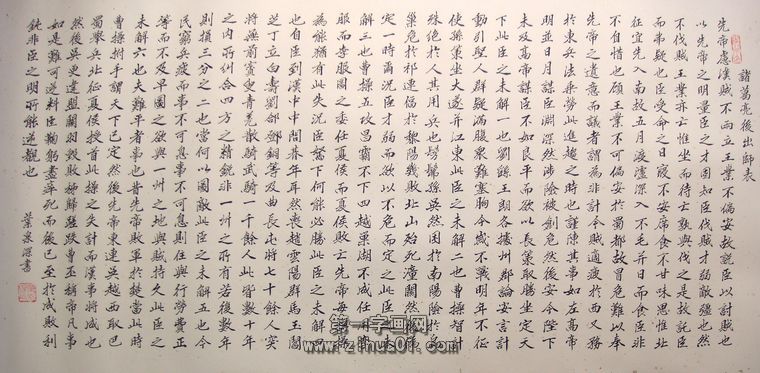 諸葛亮後出師表
先帝慮漢賊不兩立王業不偏安故託臣以討賊也
以先帝之明量臣之才固知臣伐賊才弱敵強也然
不伐賊王業亦亡惟坐而待亡孰與伐之是故託臣
而弗疑也臣受命之日寢不安席食不甘味思惟北
征宜先入南故五月渡瀘深入不毛并日而食臣非
不自惜也顧王業不可偏安於蜀都故冒危難以奉
先帝之遺意而議者謂為非計今賊適疲於西又務
於東兵法乘勞此進趨之時也謹陳其事如左高帝
明並日月謀臣淵深然涉險被創危然後安今陛下
未及高帝謀臣不如良平而欲以長策取勝坐定天
下此臣之未解一也劉繇王朗各據州郡論安言計
動引聖人群疑滿腹眾難塞胸今歲不戰明年不征
使孫策坐大遂并江東此臣之未解二也曹操智計
殊絕於人其用兵也髣髴孫吳然困於南陽險於烏
巢危於祁連偪於黎陽幾敗北山殆死潼關然後偽
定一時爾況臣才弱而欲以不危而定之此臣之未
解三也曹操五攻昌霸不下四越巢湖不成任用李
服而李服圖之委任夏侯而夏侯敗亡先帝每稱操
為能猶有此失況臣駑下何能必勝此臣之未解四
也自臣到漢中中間期年耳然喪趙雲陽群馬玉閻
芝丁立白壽劉郃鄧銅等及曲長屯將七十餘人突
將無前賨叟青羌散騎武騎一千餘人此皆數十年
之內所糾合四方之精銳非一州之所有若復數年
則損三分之二也當何以圖敵此臣之未解五也今
民窮兵疲而事不可息事不可息則住與行勞費正
等而不及早圖之欲以一州之地與賊持久此臣之
未解六也夫難平者事也昔先帝敗軍於楚當此時
曹操拊手謂天下已定然後先帝東連吳越西取巴
蜀舉兵北征夏侯授首此操之失計而漢事將成也
然後吳更違盟關羽毀敗秭歸蹉跌曹丕稱帝凡事
如是難可逆料臣鞠躬盡瘁死而後已至於成敗利
鈍非臣之明所能逆覩也
葉泉深書
第一字画网
www.zihua01.com